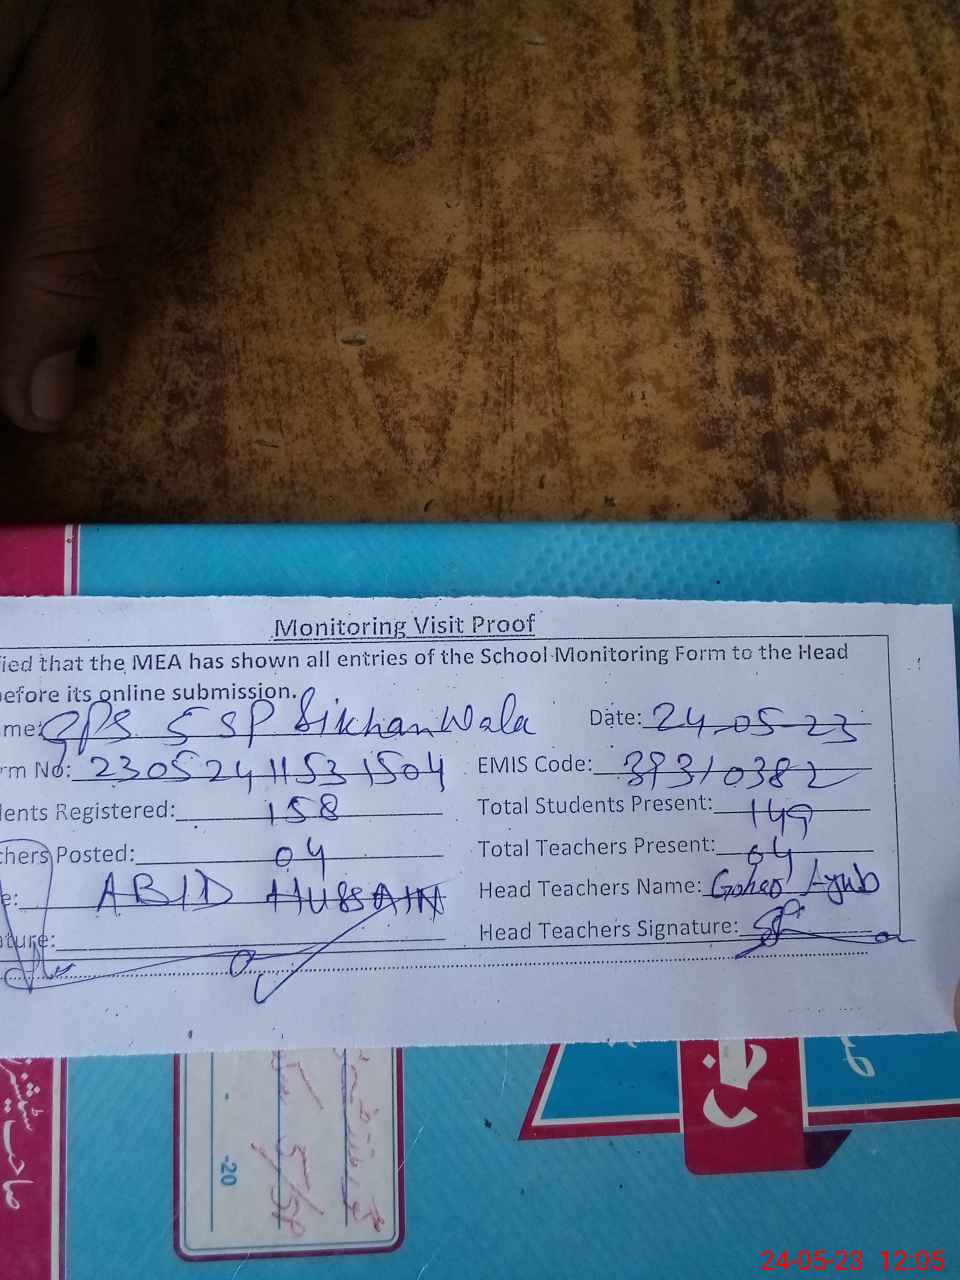 Monitoring Visit Proof
fied that the MEA has shown all entries of the School Monitoring Form to the Head
before its online submission.
me: GPS 5 SP Sikhan Wala Date: 24-05-23
rm No: 23052411531504 EMIS Code: 39310382
dents Registered: 158 Total Students Present: 149
chers Posted: 04 Total Teachers Present: 04
e: ABID HUSSAIN Head Teachers Name: Ayub
ature: Head Teachers Signature:
صاحب
-20
24-05-23 12:05